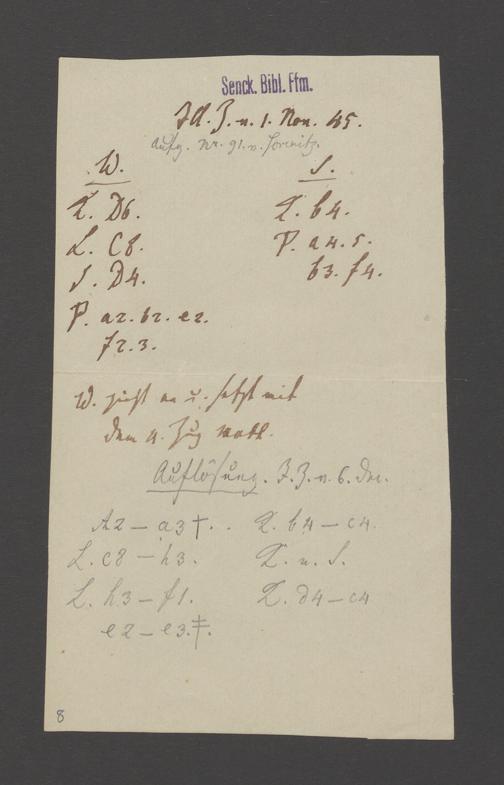 Senck. Bibl. Ffm.
Ill. Z. v. 1. Nov. 45.
Aufg. Nr. 91. v.
W. S.
K. D6. K. b4.
L. C8. P. a4. 5.
S. D4. b3. f4.
P. a2. b2. e2.
f2. 3.
W. zieht an u. setzt mit
dem 4. Zug matt.
Auflösung. I. Z. v. 6. Dec.
A2 — a3†. . K. b4 — c4.
L. c8 — h3. K. n. S.
L. h3 — f1. K. d4 — c4
e2 — e3.‡.
8